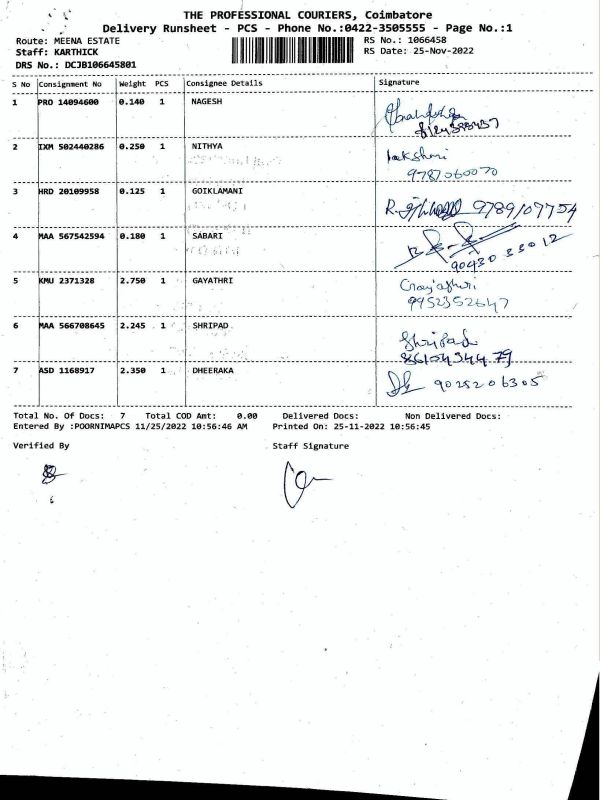 THE PROFESSIONAL COURIERS, Coimbatore
Delivery Runsheet - PCS - Phone No.:0422-3505555 - Page No.:1
Route: MEENA ESTATE RS No.: 1066458
Staff: KARTHICK RS Date: 25-Nov-2022
DRS No.: DCJB106645801
S No Consignment No Weight PCS Consignee Details Signature
1 PRO 14094600 0.140 1 NAGESH
2 IXM 502440286 0.250 1 NITHYA lakshmi
9787060070
3 HRD 20109958 0.125 1 GOIKLAMANI
9789107754
4 MAA 567542594 0.180 1 SABARI
90430 33012
5 KMU 2371328 2.750 1 GAYATHRI Gayathri
9952352647
6 MAA 566708645 2.245 1 SHRIPAD Shripad
7 ASD 1168917 2.350 1 DHEERAKA 9025206305
Total No. Of Docs: 7 Total COD Amt: 0.00 Delivered Docs: Non Delivered Docs:
Entered By :POORNIMAPCS 11/25/2022 10:56:46 AM Printed On: 25-11-2022 10:56:45
Verified By Staff Signature